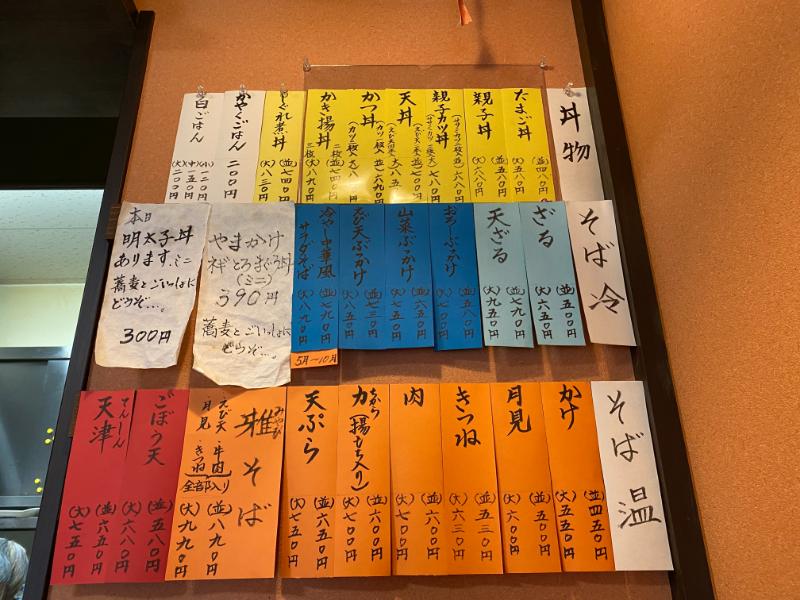 丼物
たまご丼
(並)四八〇円
(大)五八〇円
親子丼
(並)五八〇円
(大)六八〇円
親子カツ丼
(並)六八〇円
(大)七八〇円
天丼
かつ丼
かき揚丼
二枚(並)七四〇円
三枚(大)八九〇円
(並)七四〇円
(大)八三〇円
かやくごはん
二〇〇円
白ごはん
(小)一二〇円
(中)一五〇円
(大)二〇〇円
そば冷
ざる
(並)五〇〇円
(大)六五〇円
天ざる
(並)七九〇円
(大)九五〇円
おろしぶっかけ
(並)五八〇円
(大)七〇〇円
山菜ぶっかけ
(並)六五〇円
(大)七五〇円
えび天ぶっかけ
(並)七三〇円
(大)八五〇円
冷やし中華風
サラダそば
(並)七九〇円
(大)八九〇円
5月〜10月
やまかけ
ネギとろまぐろ丼
(ミニ)
390円
蕎麦とごいっしょに
どうぞ…。
本日
明太子丼
あります。ミニ
蕎麦とごいっしょに
どうぞ…。
300円
そば温
かけ
(並)四五〇円
(大)五五〇円
月見
(並)五〇〇円
(大)六〇〇円
きつね
(並)五三〇円
(大)六三〇円
肉
(並)六〇〇円
(大)七〇〇円
ちから
力(揚もち入り)
(並)六〇〇円
(大)七〇〇円
天ぷら
(並)六五〇円
(大)七五〇円
みやび
雅そば
えび天・牛肉
・月見・きつね
全部入り
(並)八九〇円
(大)九九〇円
ごぼう天
(並)五八〇円
(大)六八〇円
てんしん
天津
(並)六五〇円
(大)七五〇円